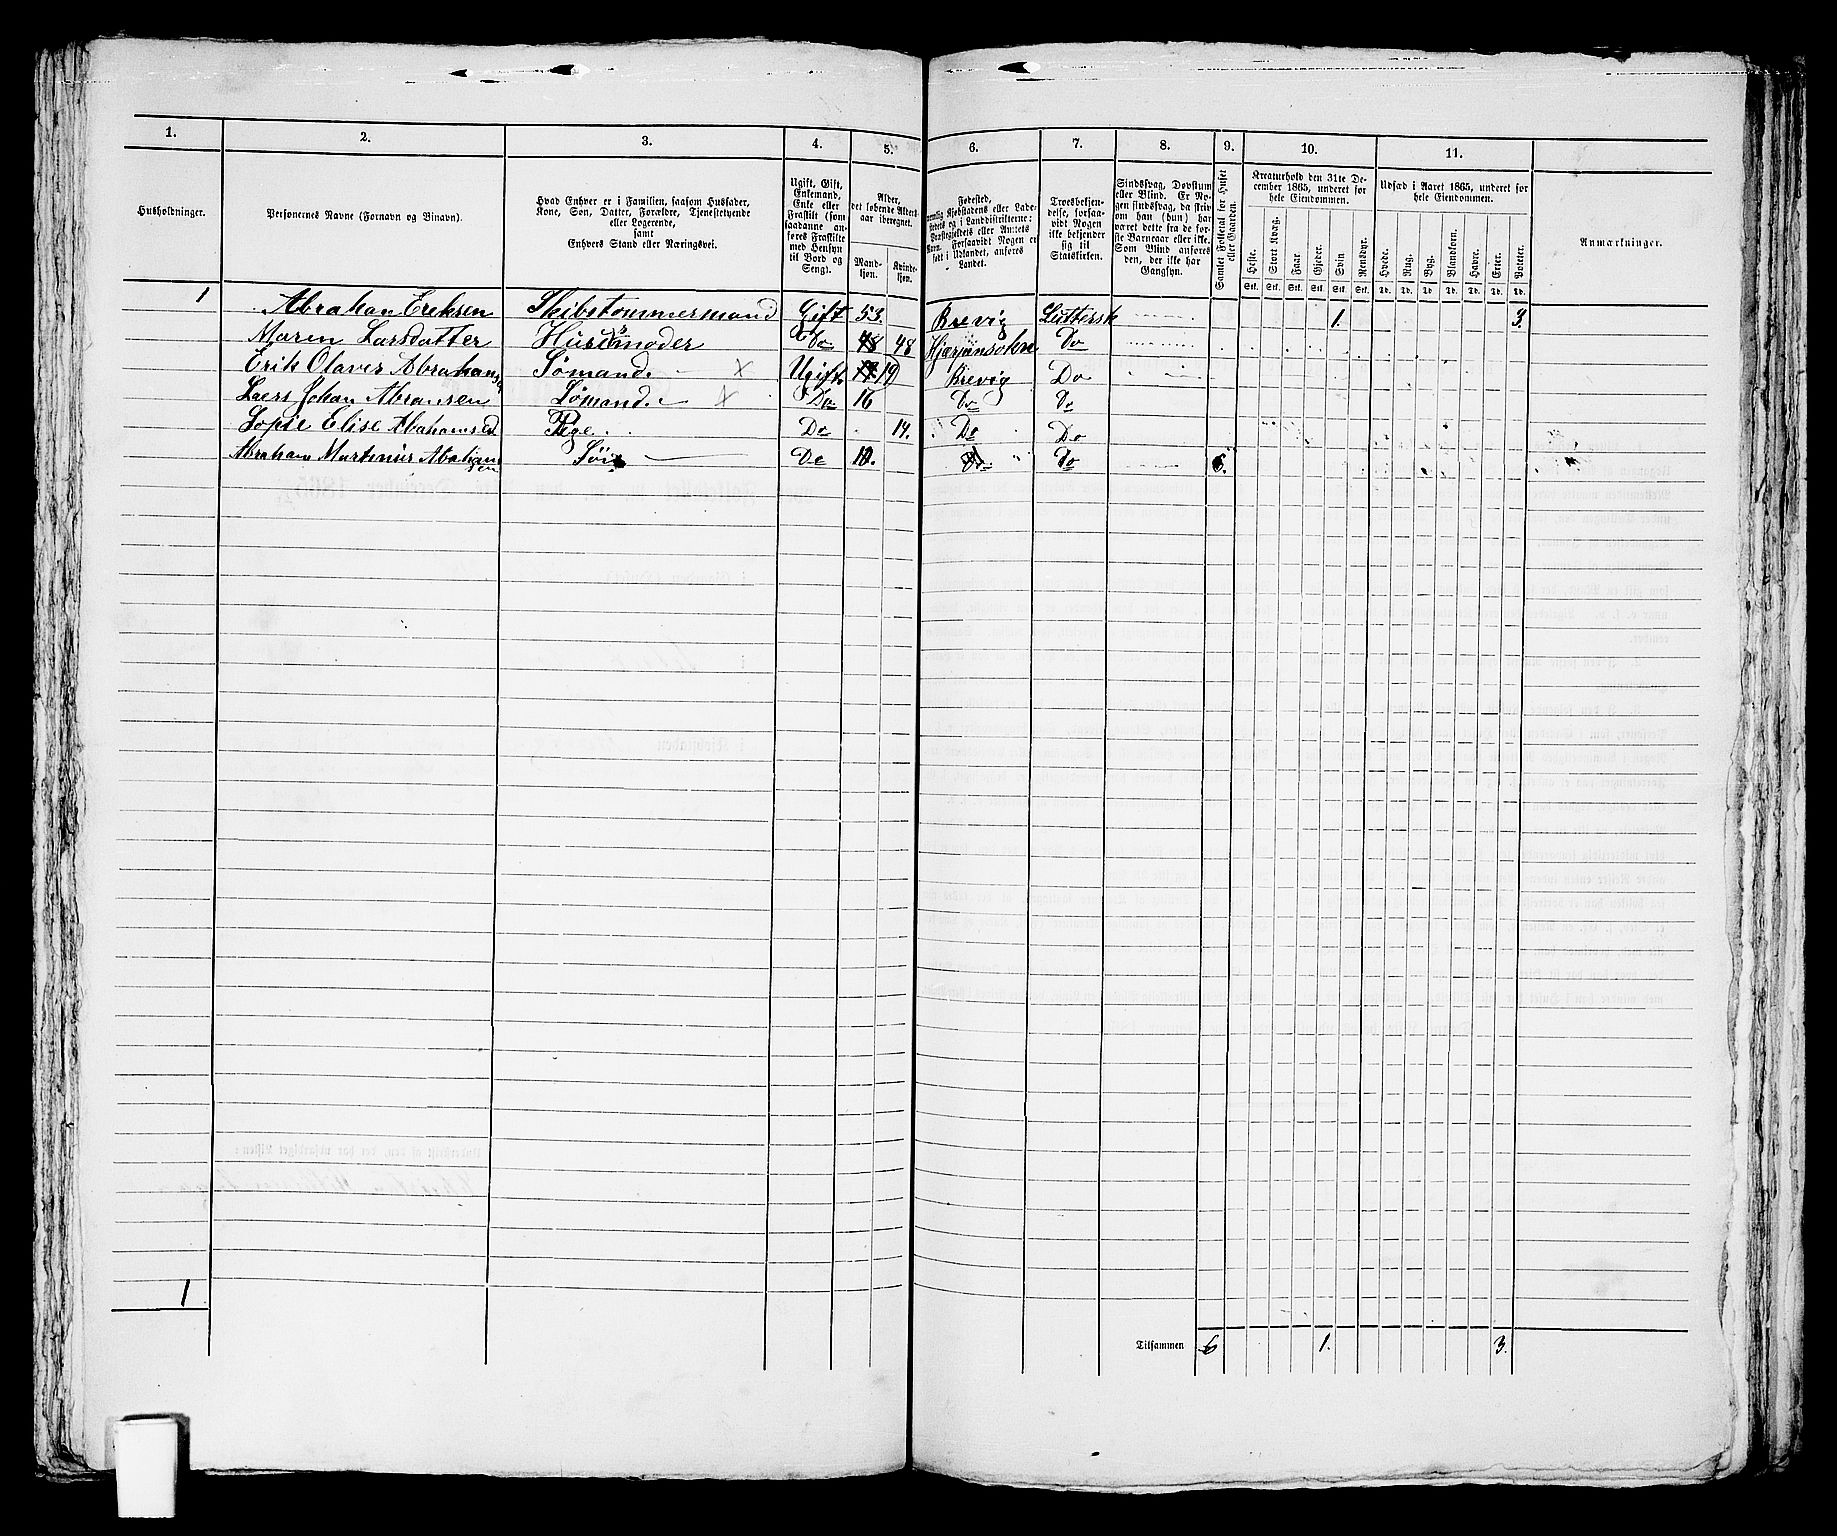 1. 2. 3. 4. 5. 6. 7. 8. 9. 10. 11.
Husholdninger.
Personernes Navne (Fornavn og Binavn).
Hvad Enhver er i Familien, saasom Husfader,
Kone, Søn, Datter, Forældre, Tjenestetyende
eller Logerende,
samt
Enhvers Stand eller Næringsvei.
Ugift, Gift,
Enkemand,
Enke eller
Fraskilt (som
saadanne an-
føres Fraskilte
med Hensyn
til Bord og
Seng).
Alder,
det løbende Alders-
aar iberegnet.
Mand-
kjøn.
Kvinde-
kjøn.
Fødested,
nemlig Kjøbstadens eller Lade-
stedets og i Landdistrikterne:
Præstegjeldets eller Amtets
Navn. Forsaavidt Nogen er
født i Udlandet, anføres
Landet.
Troesbekjen-
delse, forsaa-
vidt Nogen
ikke bekjender
sig til
Statskirken.
Sindssvag, Døvstum
eller Blind. Er No-
gen sindssvag, da skriv
om han (hun) har
været dette fra de før-
ste Barneaar eller ikke.
Som Blind anføres
den, der ikke har
Gangsyn.
Samlet Folketal for Huset
eller Gaarden.
Kreaturhold den 31te De-
cember 1865, underet for
hele Eiendommen.
Heste. Stort Kvæg. Faar. Gjeder. Svin. Rensdyr.
Stk. Stk. Stk. Stk. Stk. Stk.
Udsæd i Aaret 1865, underet for
hele Eiendommen.
Hvede. Rug. Byg. Blandkorn. Havre. Erter. Poteter.
Td. Td. Td. Td. Td. Td. Td.
Anmærkninger.
1 Abrahan Ereksen Skibstømmermand Gift 53. Brevig Luttersk 1. 3.
Maren Larsdatter Huusmoder Do 48 48 Do
Erik Olaves Abrahans Sømand. × Ugift 19 Brevig Do
Laers Johan Abransen Sømand. × Do 16 Do Do
Sopie Elise Abahamsed Pige. Do 14. Do Do
Abraham Martinius Abaham
sen Søn Do 10. Do Do 6.
1
Tilsammen 6 1. 3.